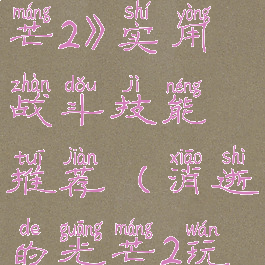 máng shí yòng
芒2》实用
zhàn dǒu jì néng
战斗技能
tuī jiàn xiāo shì
推荐(消逝
de guāng máng wán
的光芒2玩